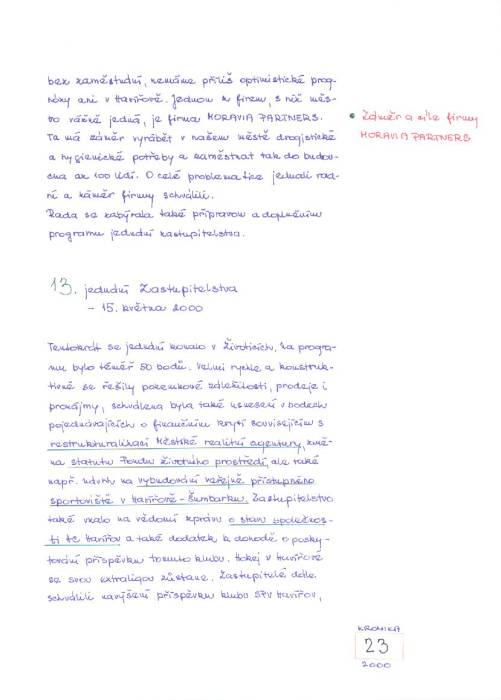 bez zaměstnání, nemáme příliš optimistické prog-
nózy ani v Havířově. Jednou z firem, s níž měs-
to vážně jedná, je firma MORAVIA PARTNERS.
Ta má záměr vyrábět v našem městě drogistické
a hygienické potřeby a zaměstnat tak do budou-
cna až 100 lidí. O celé problematice jednali rad-
ní a záměr firmy schválili.
Rada se zabývala také přípravou a doplněním
programu jednání zastupitelstva.
• Záměr a cíle firmy
MORAVIA PARTNERS
13. jednání Zastupitelstva
– 15. května 2000
Tentokrát se jednání konalo v Životicích. Na progra-
mu bylo téměř 50 bodů. Velmi rychle a konstruk-
tivně se řešily pozemkové záležitosti, prodeje i
pronájmy, schválena byla také usnesení v bodech
pojednávajících o finančním krytí souvisejícím s
restrukturalizací Městské realitní agentury, změ-
na statutu Fondu životního prostředí, ale také
např. návrh na vybudování veřejně přístupného
sportoviště v Havířově-Šumbarku. Zastupitelstvo
také vzalo na vědomí zprávu o stavu společnos-
ti HC Havířov a také dodatek k dohodě o posky-
tování příspěvku tomuto klubu. Hokej v Havířově
se svou extraligou zůstane. Zastupitelé dále
schválili navýšení příspěvku klubu SKV Havířov,
KRONIKA
23
2000